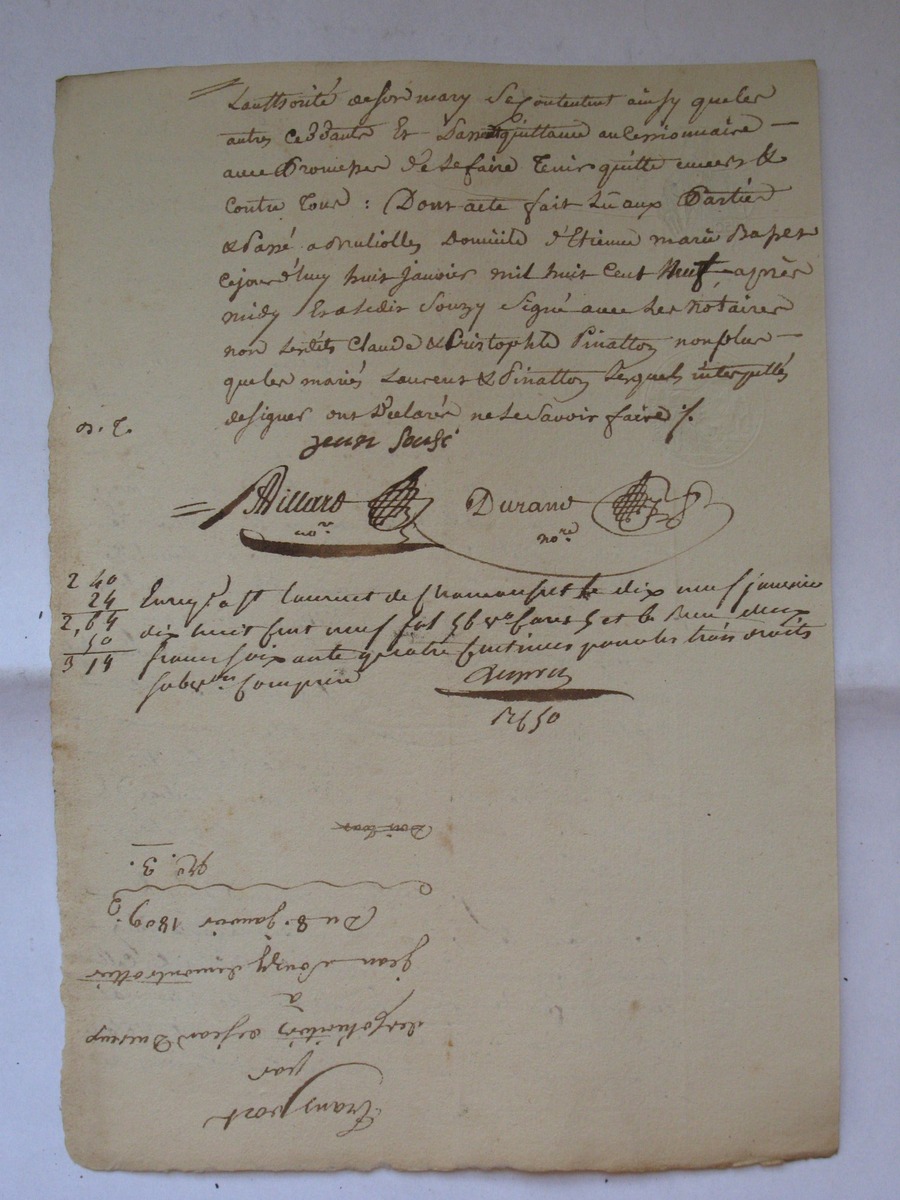 L'authorité de son mary Se Contentent ainsy que les
autres Ceddants Et Passent quittance au Cessionnaire —
avec Promesse de Le faire Tenir quitte envers &
Contre Tous : Dont acte fait Lû aux Parties
& Passé a Domicile d'Etienne marie
Cejourd'huy huit janvier mil huit Cent Neuf après
midy Souzy Signé avec Les Notaires
non Lesdits Claude & Cristophle Pinatton non plus —
que les mariés Laurent & Pinatton Lesquels interpellés
de signer ont Déclarés ne Le Savoir faire /.
jean Sousi
Billard Durand
no.re no.re
2 40
24
2,64
50
3 14
Enreg.é a S.t Laurent de Chamousset le dix neuf janvier
dix huit cent neuf fol 56 v.o Cases 5 et 6 Reçu deux
francs soixante quatre centimes pour les trois droits
subv.on Comprise
12 f 50
Transport
par
de jean
à
jean Souzy
Du 8. janvier 1809.
3.